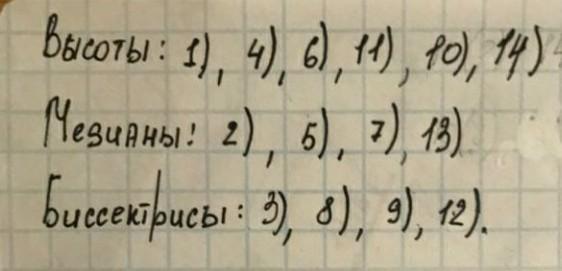 Высоты: 1), 4), 6), 11), 10), 14)
Медианы: 2), 5), 7), 13)
Биссектрисы: 3), 8), 9), 12).